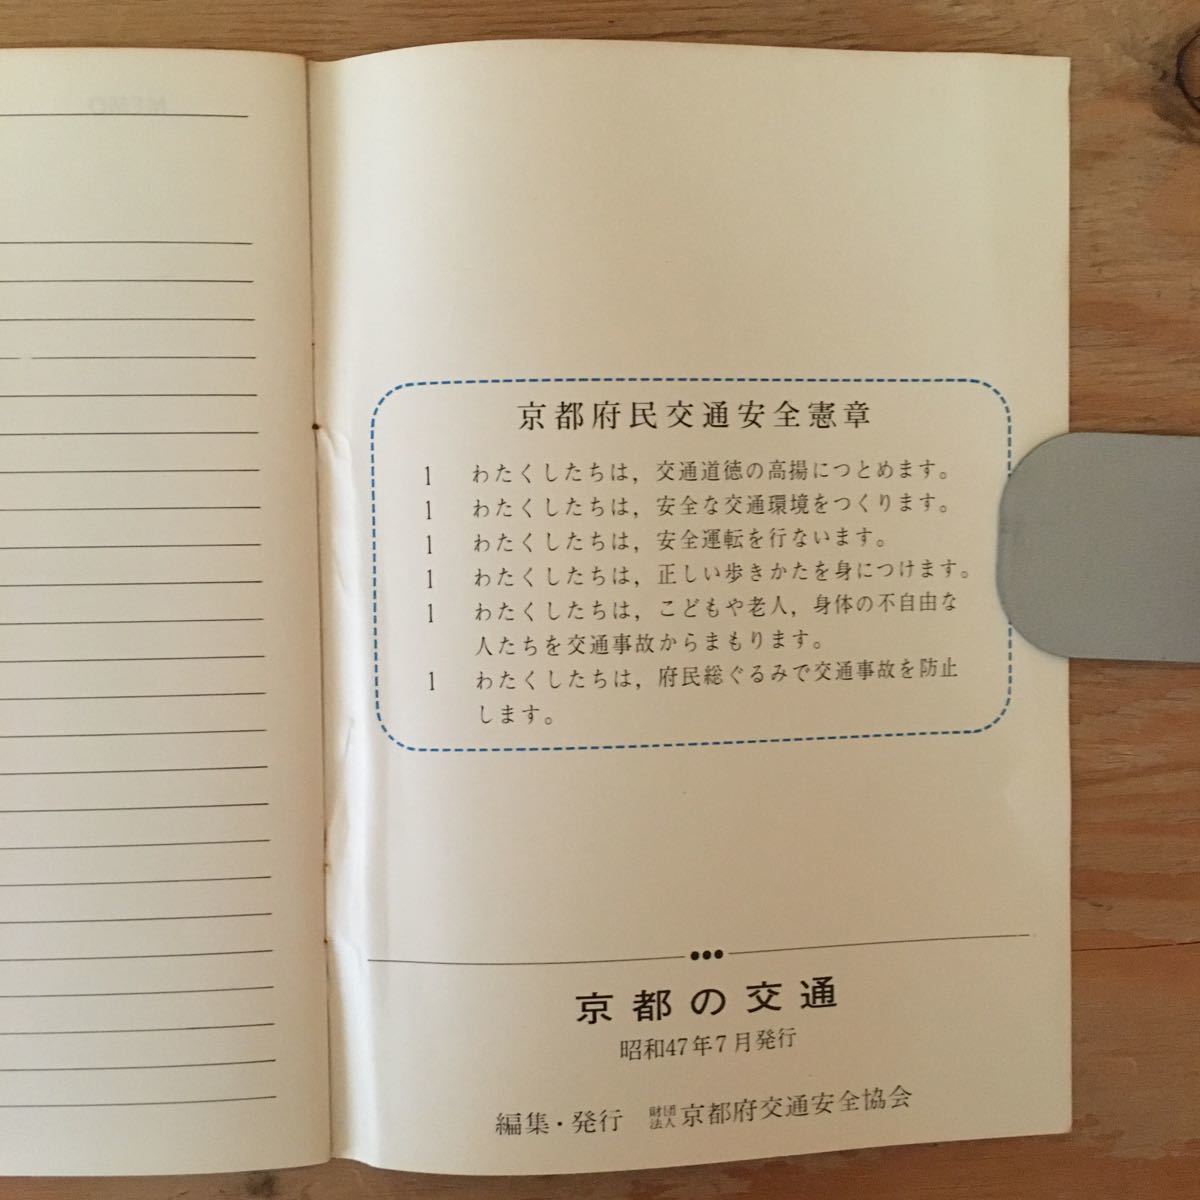 MEMO
京都府民交通安全憲章
1 わたくしたちは，交通道徳の高揚につとめます。
1 わたくしたちは，安全な交通環境をつくります。
1 わたくしたちは，安全運転を行ないます。
1 わたくしたちは，正しい歩きかたを身につけます。
1 わたくしたちは，こどもや老人，身体の不自由な
人たちを交通事故からまもります。
1 わたくしたちは，府民総ぐるみで交通事故を防止
します。
京都の交通
昭和47年7月発行
編集・発行 財団法人 京都府交通安全協会